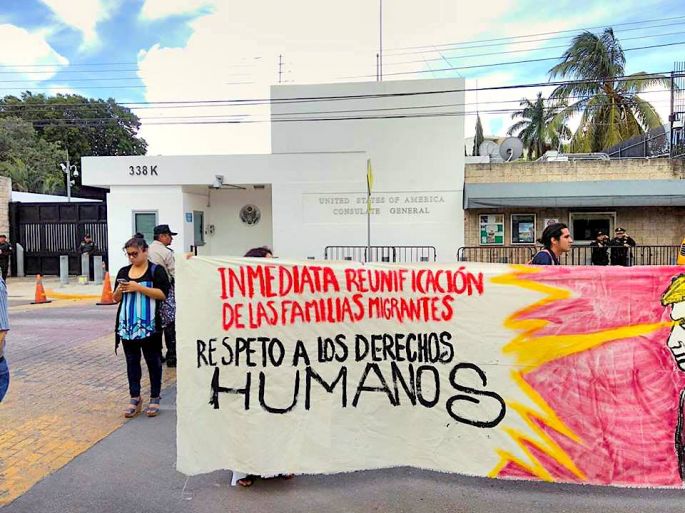 338K
UNITED STATES OF AMERICA
CONSULATE GENERAL
INMEDIATA REUNIFICACIÓN
DE LAS FAMILIAS MIGRANTES
RESPETO A LOS DERECHOS
HUMANOS